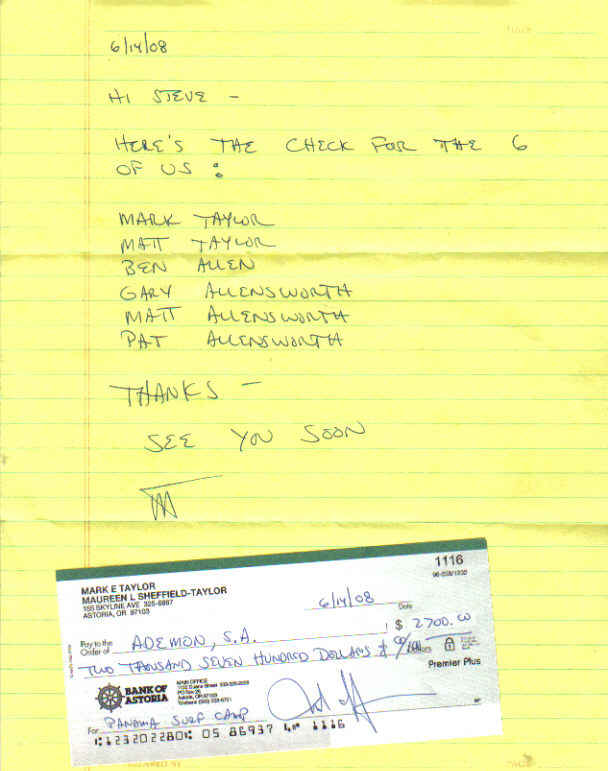 6/14/08
HI STEVE -
HERE'S THE CHECK FOR THE 6
OF US :
MARK TAYLOR
MATT TAYLOR
BEN ALLEN
GARY ALLENSWORTH
MATT ALLENSWORTH
PAT ALLENSWORTH
THANKS -
SEE YOU SOON
1116
MARK E TAYLOR
MAUREEN L SHEFFIELD-TAYLOR
ASTORIA, OR 97103
6/14/08 Date
Pay to the
Order of ADEMON, S.A. $ 2700.00
TWO THOUSAND SEVEN HUNDRED DOLLARS & Dollars
Premier Plus
BANK OF
ASTORIA
MAIN OFFICE
For PANAMA SURF CAMP